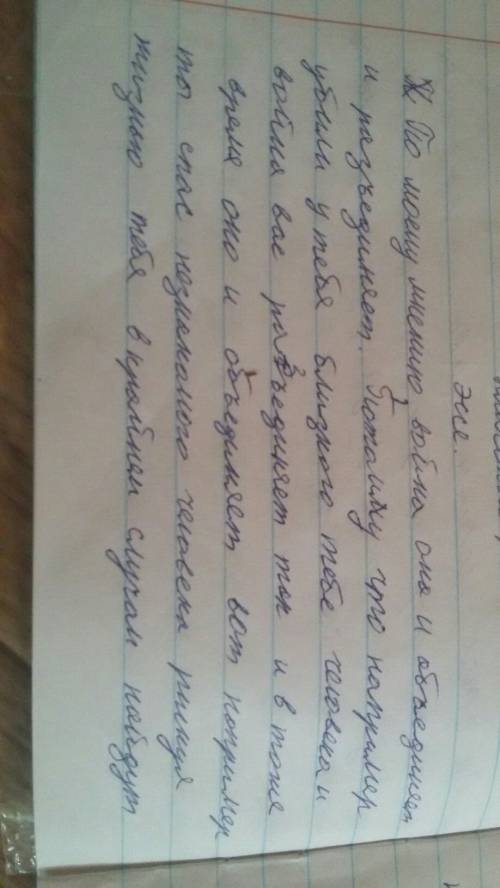 Эсе.
Ж По моему мнению война она и объединяет
и разъединяет. Потому что например
убили у тебя близкого тебе человека и
война вас разъединяет так и в тоже
время оно и объединяет вот например
ты спас незнакомого человека рискуя
жизнью тебя в крайнем случаи найдут